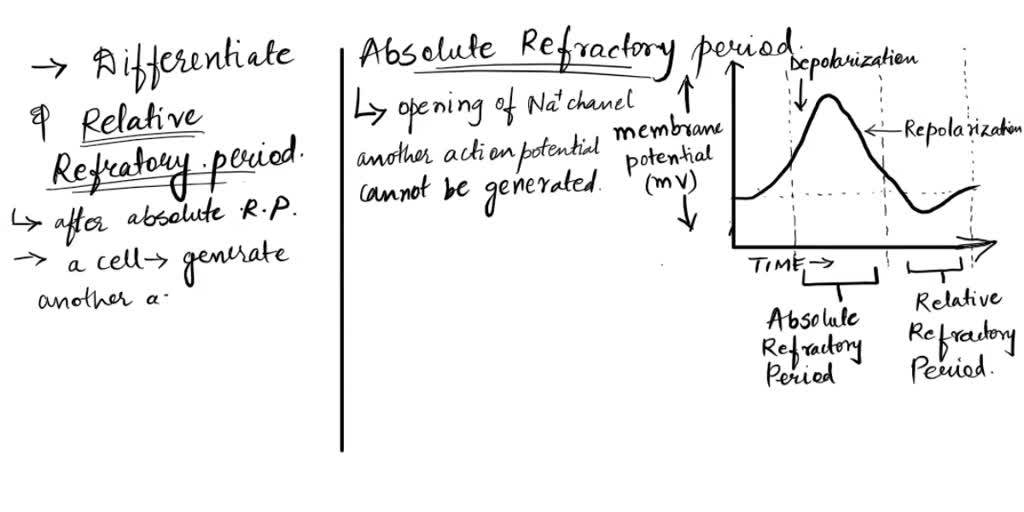 → Differentiate
Relative
Refratory period.
↳ after absolute R.P.
→ a cell → generate
another a.
Absolute Refractory period.
↳ opening of Na⁺ chanel
another action potential
cannot be generated.
membrane
potential
(mv)
Depolarization
← Repolarization
TIME →
Absolute
Refractory
Period
Relative
Refractory
Period.